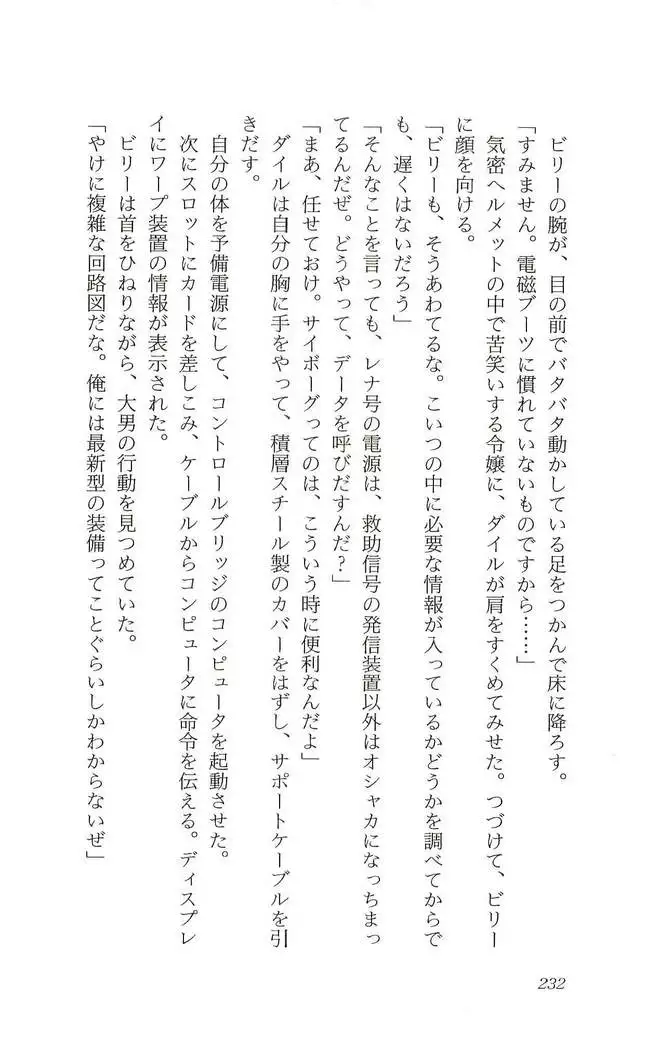 ビリーの腕が、目の前でバタバタ動かしている足をつかんで床に降ろす。
「すみません。電磁ブーツに慣れていないものですから……」
　気密ヘルメットの中で苦笑いする令嬢に、ダイルが肩をすくめてみせた。つづけて、ビリー
に顔を向ける。
「ビリーも、そうあわてるな。こいつの中に必要な情報が入っているかどうかを調べてからで
も、遅くはないだろう」
「そんなことを言っても、レナ号の電源は、救助信号の発信装置以外はオシャカになっちまっ
てるんだぜ。どうやって、データを呼びだすんだ？」
「まあ、任せておけ。サイボーグってのは、こういう時に便利なんだよ」
　ダイルは自分の胸に手をやって、積層スチール製のカバーをはずし、サポートケーブルを引
きだす。
　自分の体を予備電源にして、コントロールブリッジのコンピュータを起動させた。
　次にスロットにカードを差しこみ、ケーブルからコンピュータに命令を伝える。ディスプレ
イにワープ装置の情報が表示された。
　ビリーは首をひねりながら、大男の行動を見つめていた。
「やけに複雑な回路図だな。俺には最新型の装備ってことぐらいしかわからないぜ」
232